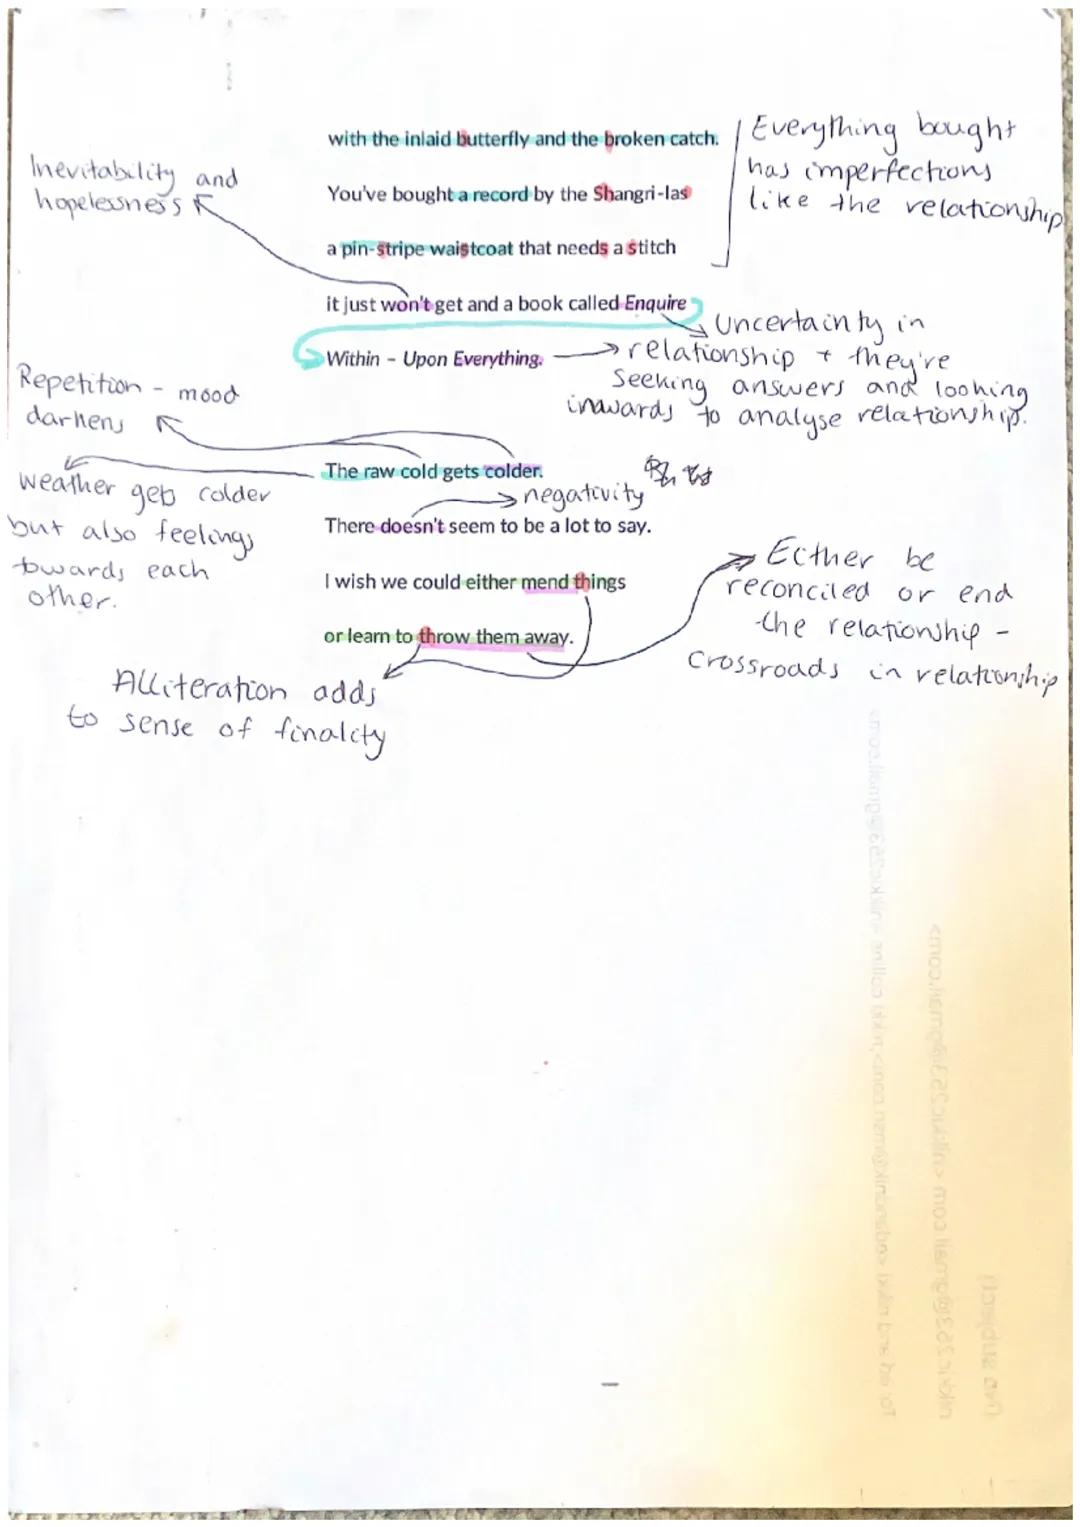 with the inlaid butterfly and the broken catch.
Everything bought
has imperfections
like the relationship
Inevitability and
hopelessness
You've bought a record by the Shangri-las
a pin-stripe waistcoat that needs a stitch
it just won't get and a book called Enquire
Within - Upon Everything.
Uncertainty in
relationship + they're
seeking answers and looking
inwards to analyse relationship.
Repetition - mood
darkens
The raw cold gets colder.
weather gets colder
but also feelings
towards each
other.
negativity
There doesn't seem to be a lot to say.
I wish we could either mend things
or learn to throw them away.
Either be
reconciled or end
the relationship -
crossroads in relationship
Alliteration adds
to sense of finality